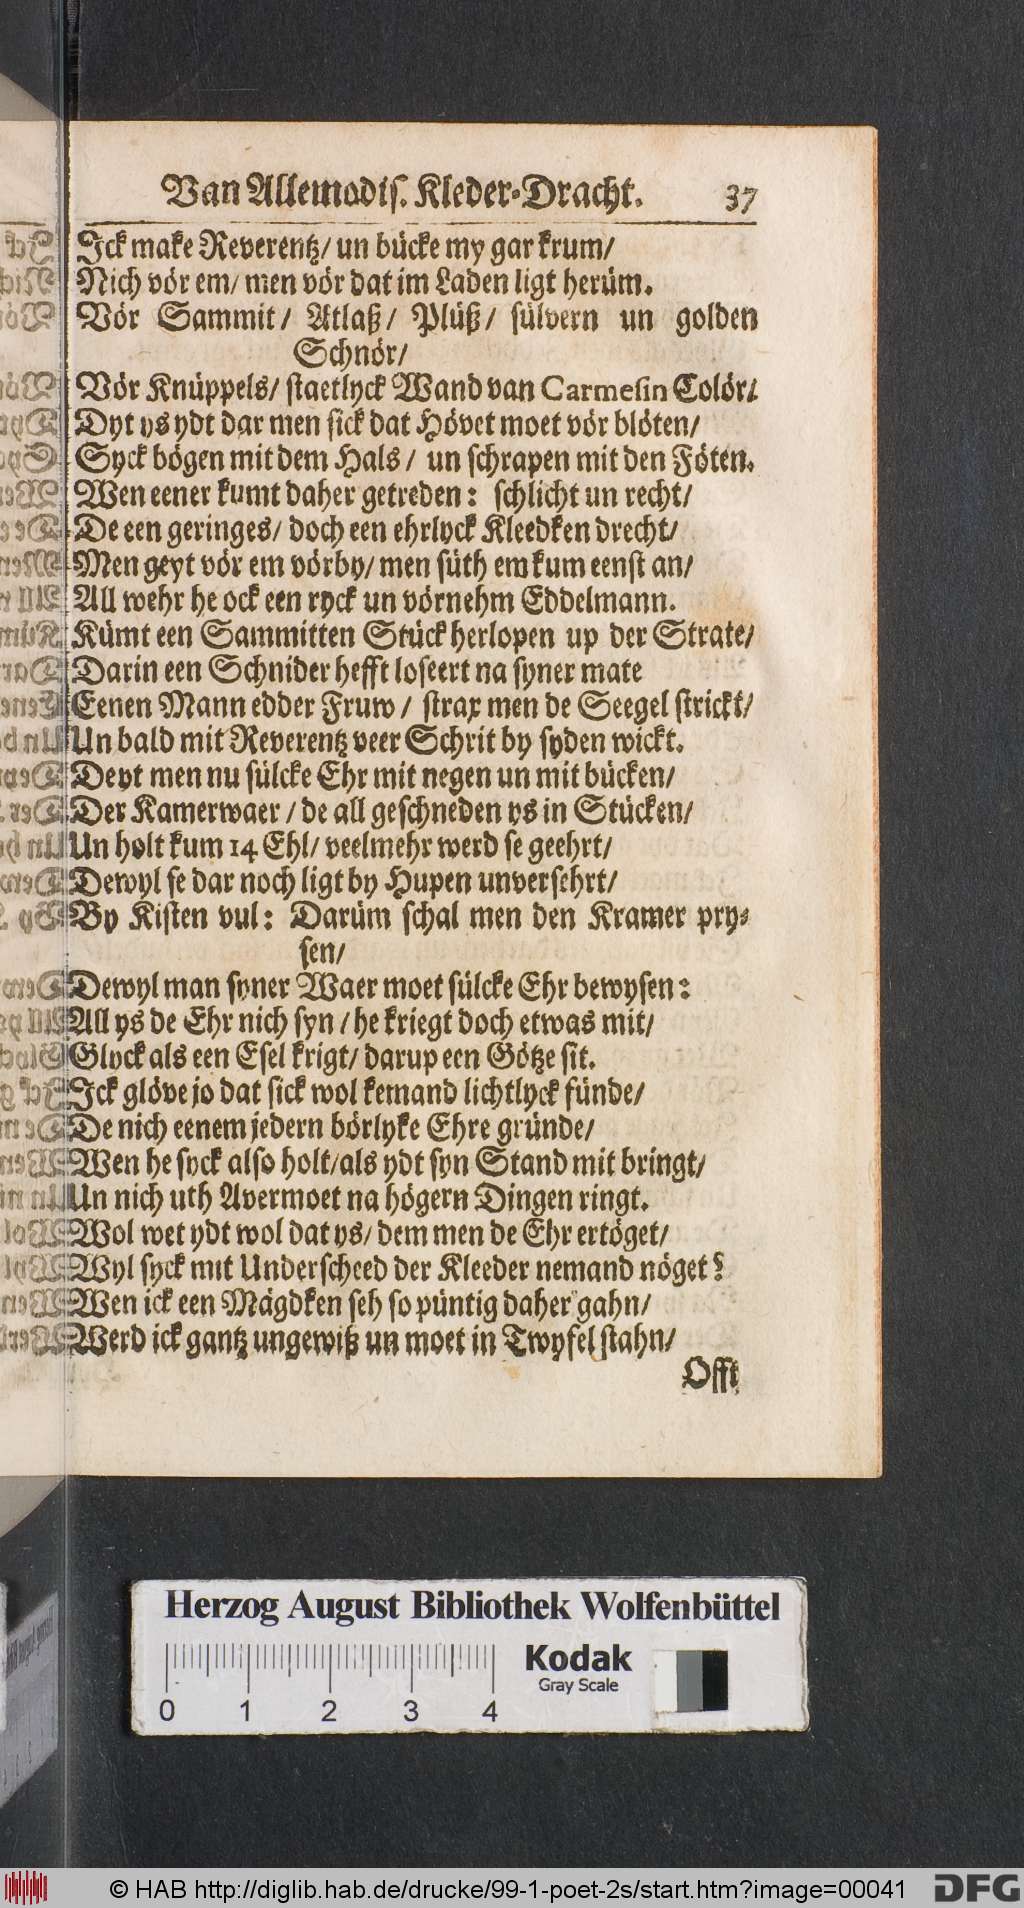 Van Allemodis. Kleder-Dracht. 37
Ick make Reverentz/ un bücke my gar krum/
Nich vör em/ men vör dat im Laden ligt herüm.
Vör Sammit/ Atlaß/ Plüß/ sülvern un golden
Schnör/
Vör Knüppels/ staetlyck Wand van Carmesin Colör/
Dyt ys ydt dar men sick dat Hövet moet vör blöten/
Syck bögen mit dem Hals/ un schrapen mit den Föten.
Wen eener kumt daher getreden: schlicht un recht/
De een geringes/ doch een ehrlyck Kleedken drecht/
Men geyt vör em vörby/ men süth em kum eenst an/
All wehr he ock een ryck un vörnehm Eddelmann.
Kümt een Sammitten Stück herlopen up der Strate/
Darin een Schnider hefft loseert na syner mate
Eenen Mann edder Fruw/ strax men de Seegel strickt/
Un bald mit Reverentz veer Schrit by syden wickt.
Deyt men nu sülcke Ehr mit negen un mit bücken/
Der Kamerwaer/ de all geschneden ys in Stücken/
Un holt kum 14 Ehl/ veelmehr werd se geehrt/
Dewyl se dar noch ligt by Hupen unversehrt/
By Kisten vul: Darüm schal men den Kramer pry-
sen/
Dewyl man syner Waer moet sülcke Ehr bewysen:
All ys de Ehr nich syn/ he kriegt doch etwas mit/
Glyck als een Esel krigt/ darup een Götze sit.
Ick glöve jo dat sick wol kemand lichtlyck fünde/
De nich eenem jedern börlyke Ehre gründe/
Wen he syck also holt/ als ydt syn Stand mit bringt/
Un nich uth Avermoet na högern Dingen ringt.
Wol wet ydt wol dat ys/ dem men de Ehr ertöget/
Wyl syck mit Underscheed der Kleeder nemand nöget?
Wen ick een Mägdken seh so püntig daher gahn/
Werd ick gantz ungewiß un moet in Twyfel stahn/
Offt
Herzog August Bibliothek Wolfenbüttel
Kodak
Gray Scale
0 1 2 3 4
© HAB http://diglib.hab.de/drucke/99-1-poet-2s/start.htm?image=00041
DFG